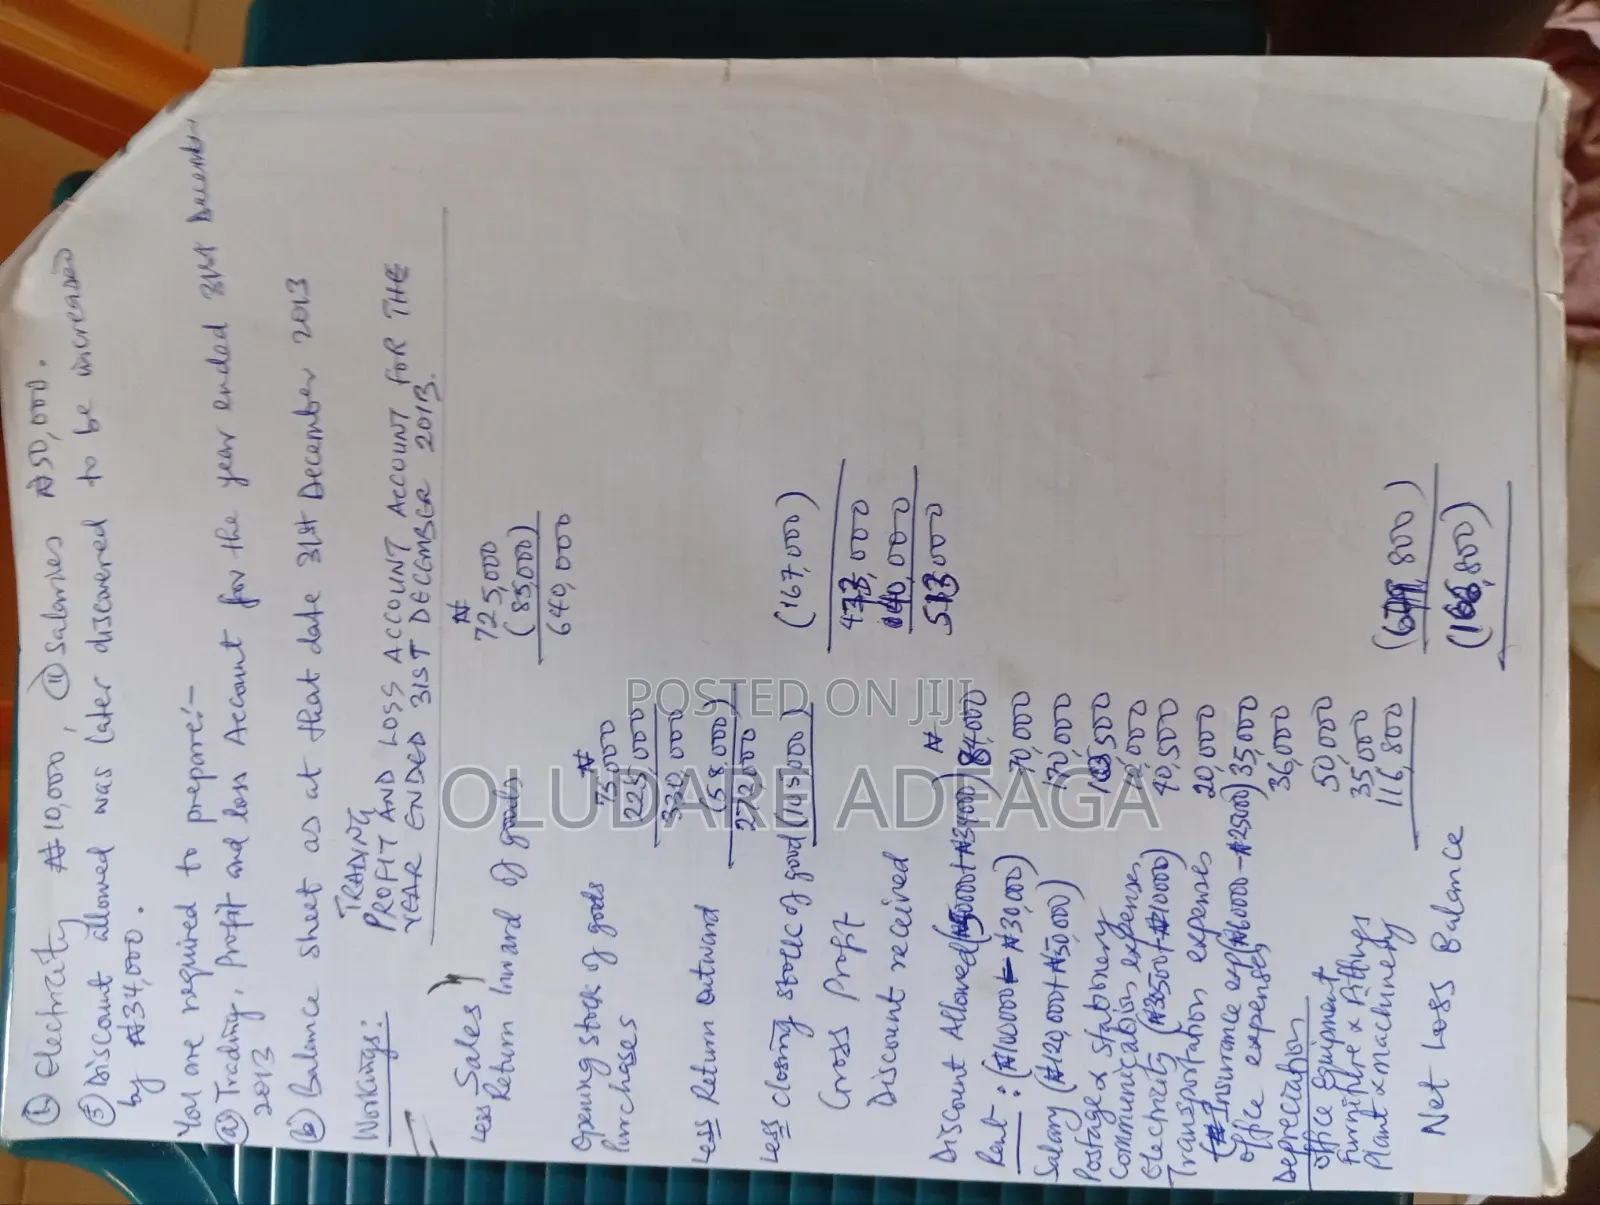 ① Electricity ₦10,000, ⑪ Salaries ₦50,000.
⑤ Discount allowed was later discovered to be increased
by ₦34,000.
You are required to prepare:-
ⓐ Trading, Profit and loss Account for the year ended 31st December
2013
ⓑ Balance Sheet as at that date 31st December 2013
Workings:
TRADING
PROFIT AND LOSS ACCOUNT ACCOUNT FOR THE
YEAR ENDED 31ST DECEMBER 2013.
₦
Sales 725,000
Less Return Inward of goods (85,000)
640,000
₦
Opening stock of goods 75,000
Purchases 225,000
320,000
Less Return Outward (58,000)
272,000
Less Closing stock of good (105,000) (167,000)
Gross Profit 473,000
Discount received 40,000
513,000
₦
Discount Allowed (₦50000+₦34000) 84,000
Rent: (₦100000-₦30,000) 70,000
Salary (₦120,000+₦50,000) 170,000
Postage & Stationery 500
Communication expenses 10,000
Electricity (₦30500+₦10000) 40,500
Transportation expenses 20,000
Insurance exp (₦60000-₦25000) 35,000
Office expenses 36,000
Depreciation
Office Equipment 50,000
Furniture & fittings 35,000
Plant & machinery 116,800 800)
Net Loss Balance (166,800)
POSTED ON JIJI
OLUDARE ADEAGA